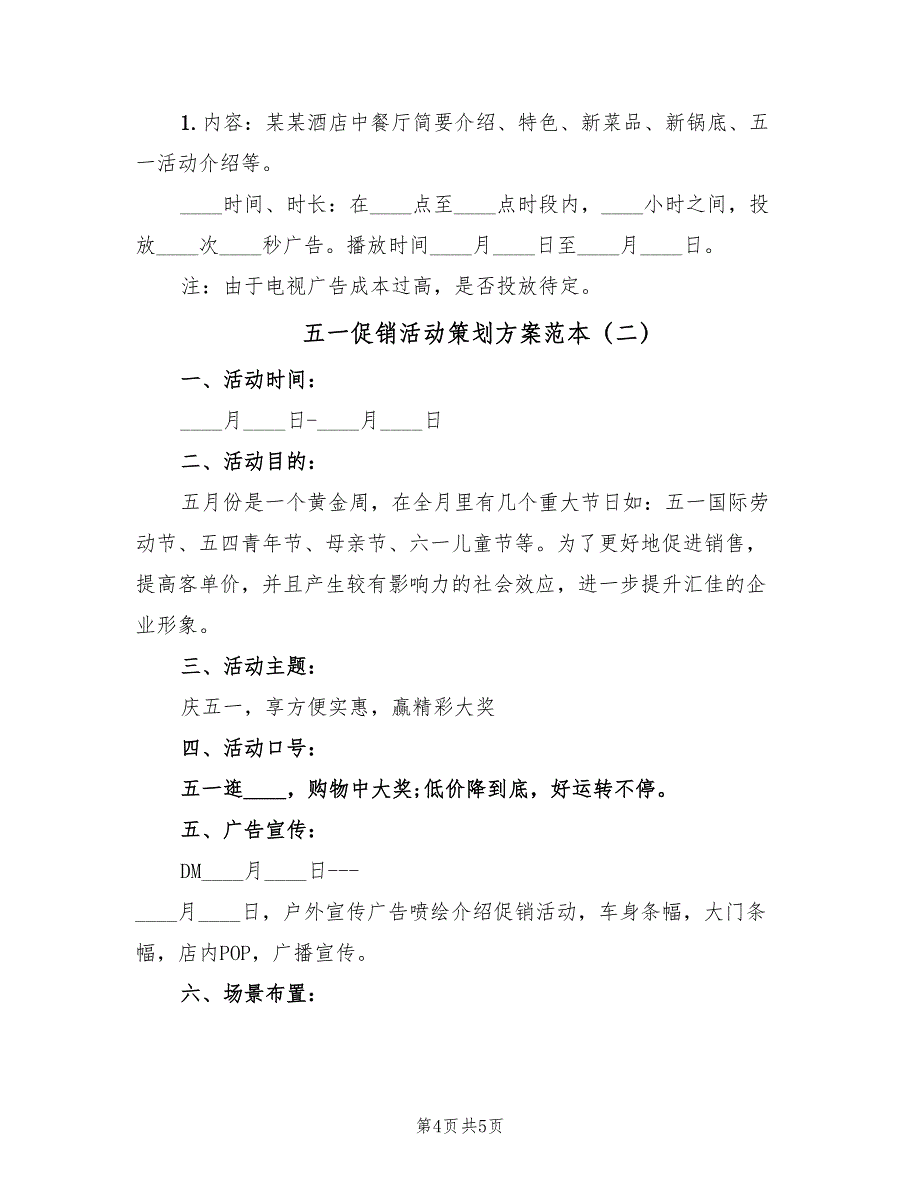 1. 内容：某某酒店中餐厅简要介绍、特色、新菜品、新锅底、五
一活动介绍等。
____时间、时长：在____点至____点时段内，____小时之间，投
放____次____秒广告。播放时间____月____日至____月____日。
注：由于电视广告成本过高，是否投放待定。
五一促销活动策划方案范本（二）
一、活动时间：
____月____日-____月____日
二、活动目的：
五月份是一个黄金周，在全月里有几个重大节日如：五一国际劳
动节、五四青年节、母亲节、六一儿童节等。为了更好地促进销售，
提高客单价，并且产生较有影响力的社会效应，进一步提升汇佳的企
业形象。
三、活动主题：
庆五一，享方便实惠，赢精彩大奖
四、活动口号：
五一逛____，购物中大奖;低价降到底，好运转不停。
五、广告宣传：
DM____月____日---
____月____日，户外宣传广告喷绘介绍促销活动，车身条幅，大门条
幅，店内POP，广播宣传。
六、场景布置：
第4页 共5页